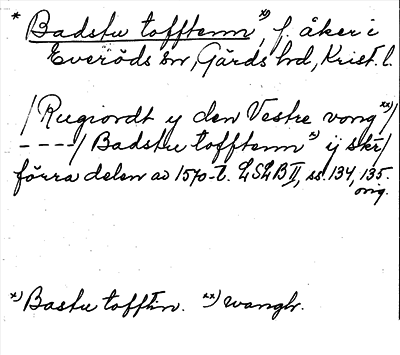 * Badstu tofftenn x), f. åker i
Everöds sn, Gärds hd, Krist. l.
/Rugiordt y den Vestre vong xx)/
----/Badstu tofftenn x) ij skr/
förra delen av 1570-t. LSLB II, ss. 134, 135.
orig.
x) Bastu tofftin. xx) wangh.